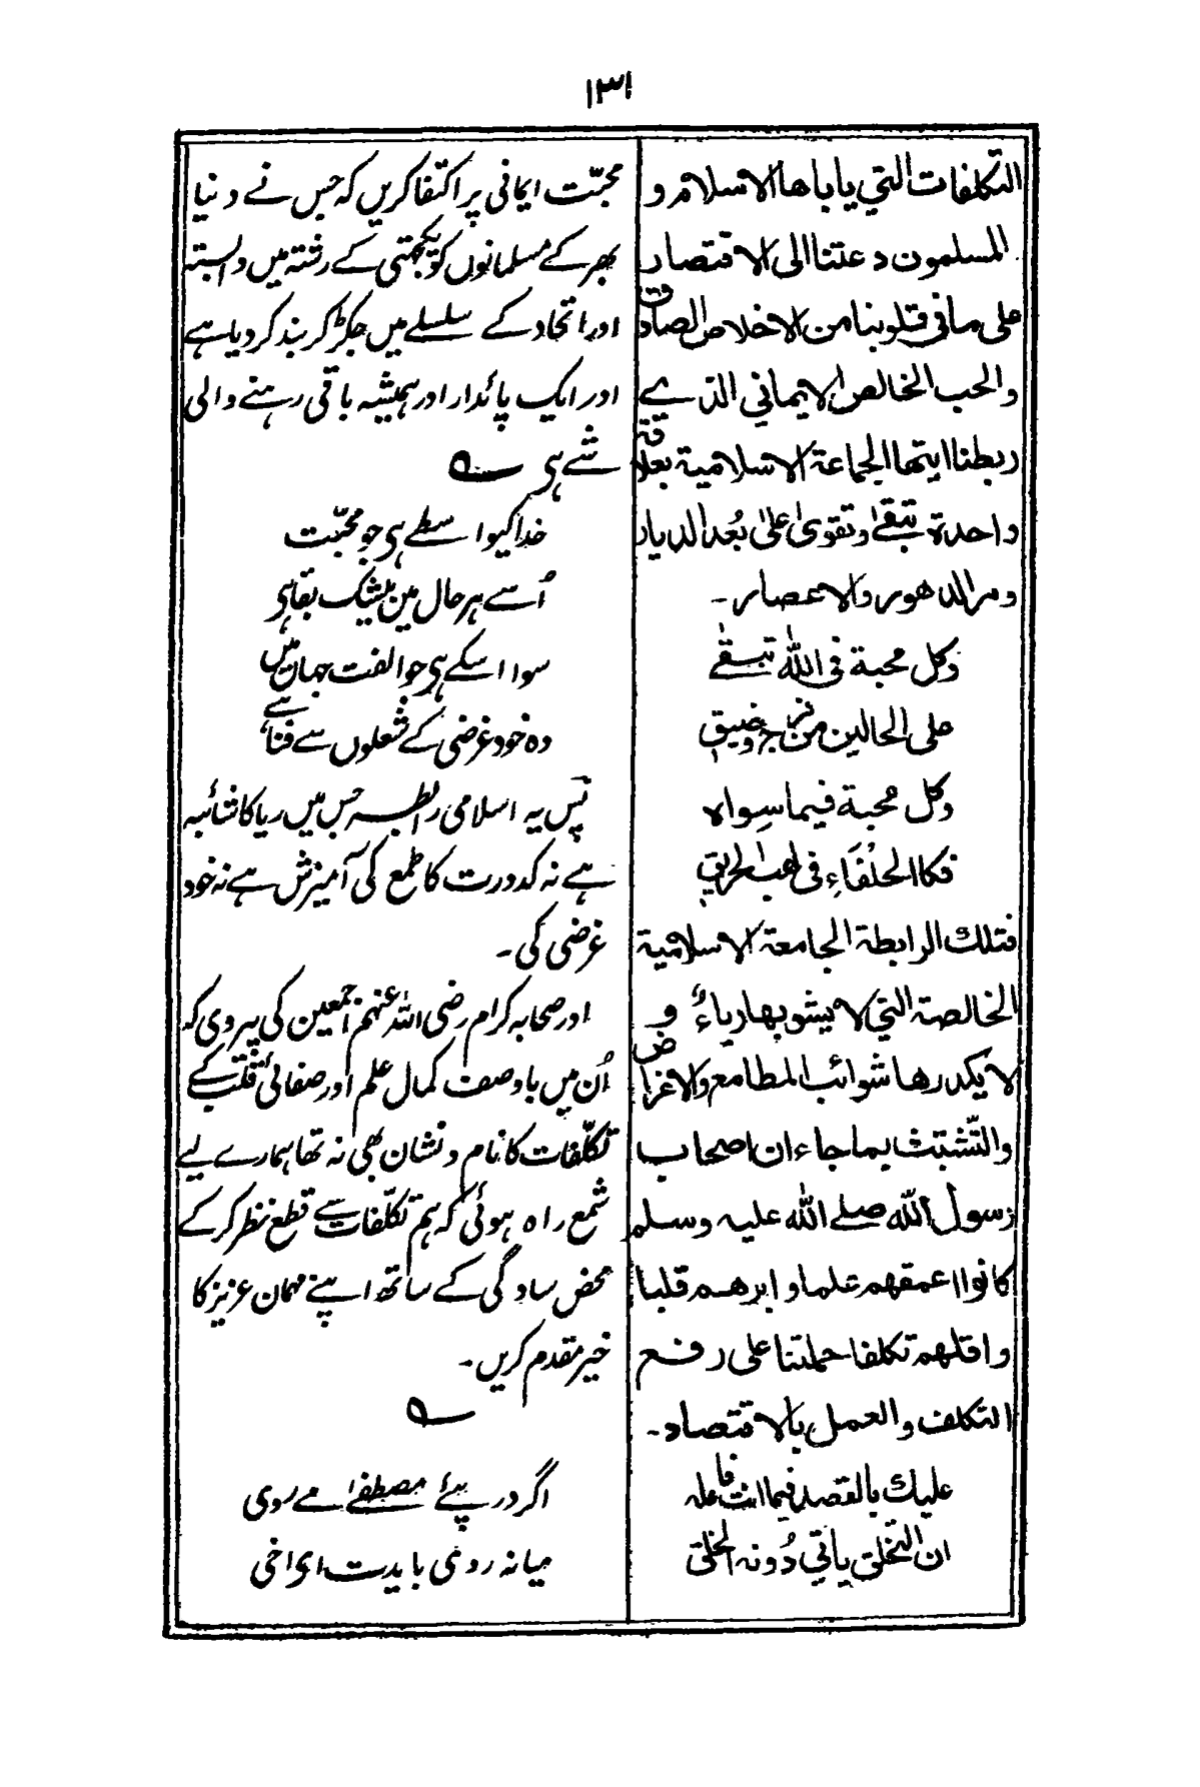 ۱۳۱
التكلفات التي ياباها الاسلام و
المسلمون دعتنا الى الاقتصار
على ما في قلوبنا من الاخلاص الصادق
والحب الخالص الايماني الذے
ربطنا ايتها الجماعة الاسلامية بعلاقة
واحدة تبقىٰ وتقوىٰ علىٰ بُعد الديار
ومر الدهور والاعصار۔
وكل محبة فى الله تبقےٰ
على الحالين من فرج وضيق
وكل محبة فيما سِواه
فكا الحلْفَاءِ فى لهب الحريق
فتلك الرابطة الجامعة الاسلامية
الخالصة التي لا يشوبها رياءٌ و
لا يكدرها شوائب المطامع والاغراض
والتّشبّث بما جاء ان اصحاب
رسول الله صلے الله عليه وسلم
كانوا اعمقهم علما و ابرهم قلبا
واقلهم تكلفا حملتنا على رفع
التكلف والعمل بالاقتصاد۔
عليك بالقصد فيما انت فاعله
ان التخلق ياتي دُونه الخلق
محبّت ایمانی پر اکتفا کریں کہ جس نے دنیا
بھر کے مسلمانوں کو یکجہتی کے رشتہ میں وابستہ
اور اتحاد کے سلسلے میں جکڑ کر بند کر دیا ہے
اور ایک پائدار اور ہمیشہ باقی رہنے والی
شے ہی ؎
خدا کیواسطے ہی جو محبّت
اُسے ہر حال مین بیشک بقا ہی
سوا اسکے ہی جو الفت جہان میں
وہ خود غرضی کے شعلوں سے فنا ہے
پس یہ اسلامی رابطہ جس میں ریا کا شائبہ
ہے نہ کدورت کا طمع کی آمیزش ہے نہ خود
غرضی کی۔
اور صحابہ کرام رضی اللہ عنہم اجمعین کی پیروی کہ
اُن میں باوصف کمال علم اور صفائی قلب کے
تکلّفات کا نام و نشان بھی نہ تھا ہمارے لیے
شمع راہ ہوئی کہ ہم تکلّفات سے قطع نظر کر کے
محض سادگی کے ساتھ اپنے مہمان عزیز کا
خیر مقدم کریں۔
؎
اگر در پئے مصطفےٰ مے روی
میانہ روی بایدت ای اخی